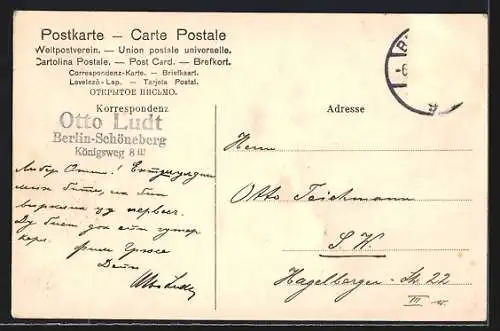 Postkarte — Carte Postale
Weltpostverein. — Union postale universelle.
Cartolina Postale. — Post Card. — Brefkort.
Correspondenz-Karte. — Briefkaart.
Levelező-Lap. — Tarjeta Postal.
ОТКРЫТОЕ ПИСЬМО.
Korrespondenz
Otto Ludt
Berlin-Schöneberg
Königsweg 8 III
Либер Отто!
мих битте, их бин
Ду бист, дох ейн гутер
керл.
Дейн
Otto Ludt
B
Adresse
Herrn
Otto Teichmann
S. W.
Hagelberger-Str. 22
III